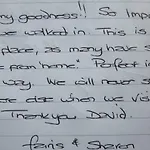 ny goodness!! So Impr
we walked in This is
place, as many have s
e from home." Perfect i
way. We will never s
ere else when we visi
Thankyou David.
& Sharon